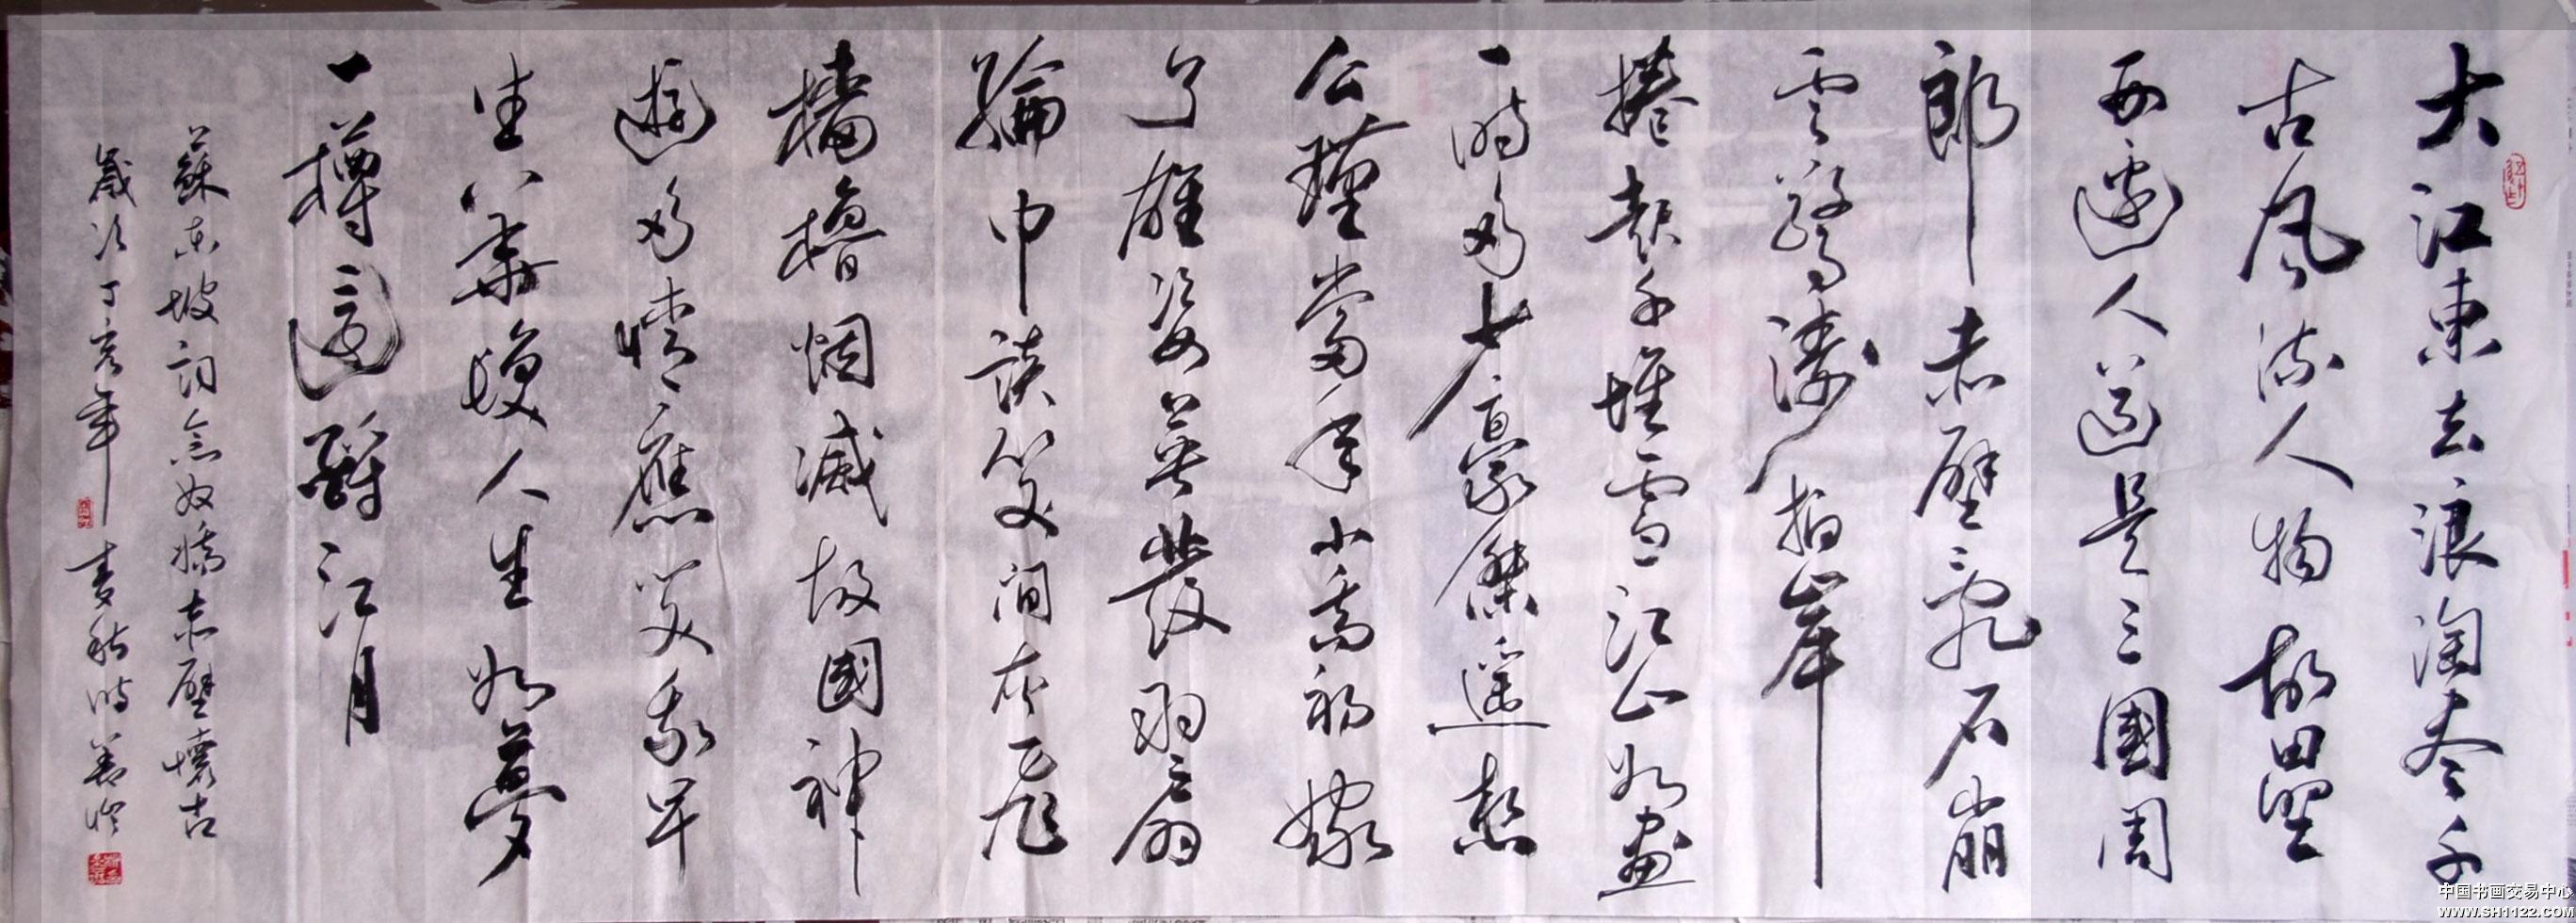 大江東去浪淘盡千
古風流人物故壘
西邊人道是三國周
郎赤壁亂石崩
雲驚濤拍岸
捲起千堆雪江山如畫
一時多少豪傑遙想
公瑾當年小喬初嫁
了雄姿英發羽扇
綸巾談笑間灰飛
檣櫓烟滅故國神
遊多情應笑我早
生華髮人生如夢
一樽還酹江月
蘇東坡詞念奴嬌赤壁懷古
歲次丁亥年
中国书画交易中心
www.SH1122.COM